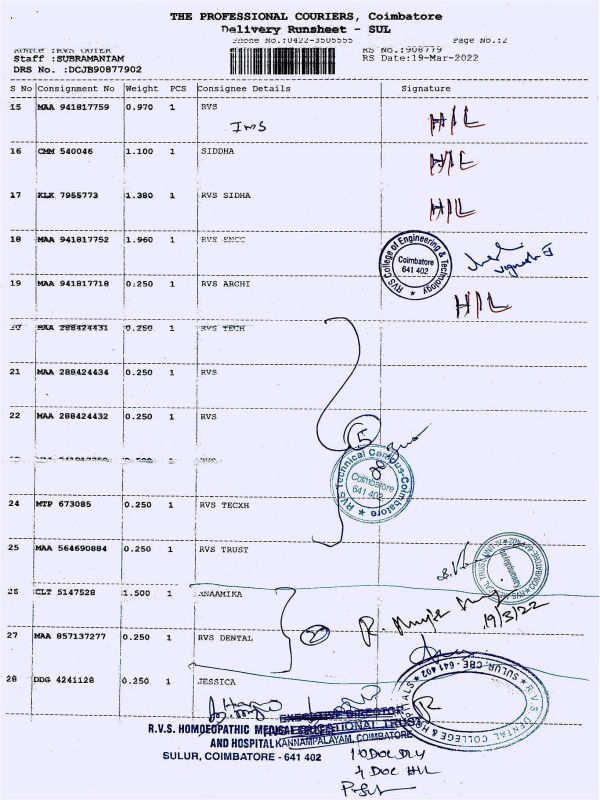 THE PROFESSIONAL COURIERS, Coimbatore
Delivery Runsheet - SUL
Phone No.:0422-3505555 Page No.:2
Source :RVS OUTER RS No.:908779
Staff :SUBRAMANIAM RS Date:19-Mar-2022
DRS No. :DCJB90877902
S No Consignment No Weight PCS Consignee Details Signature
15 MAA 941817759 0.970 1 RVS
IMS H/L
16 CMM 540046 1.100 1 SIDDHA H/L
17 KLK 7955773 1.380 1 RVS SIDHA H/L
18 MAA 941817752 1.960 1 RVS ENCC
RVS College of Engineering & Technology
Coimbatore
641 402
Vignesh J
19 MAA 941817718 0.250 1 RVS ARCHI H/L
20 MAA 288424431 0.250 1 RVS TECH
21 MAA 288424434 0.250 1 RVS
22 MAA 288424432 0.250 1 RVS
5
RVS Technical Campus-Coimbatore
Coimbatore
641 402
24 MTP 673085 0.250 1 RVS TECXH
25 MAA 564690884 0.250 1 RVS TRUST
26 CLT 5147528 1.500 1 ANAAMIKA
19/3/22
27 MAA 857137277 0.250 1 RVS DENTAL
28 DDG 4241128 0.250 1 JESSICA
R.V.S. DENTAL COLLEGE & HOSPITALS
SULUR, CBE - 641 402
EXECUTIVE DIRECTOR
R.V.S. HOMOEOPATHIC MEDICAL EDUCATIONAL TRUST
AND HOSPITAL KANNAMPALAYAM, COIMBATORE
SULUR, COIMBATORE - 641 402
10 DOC DLY
4 DOC H/L